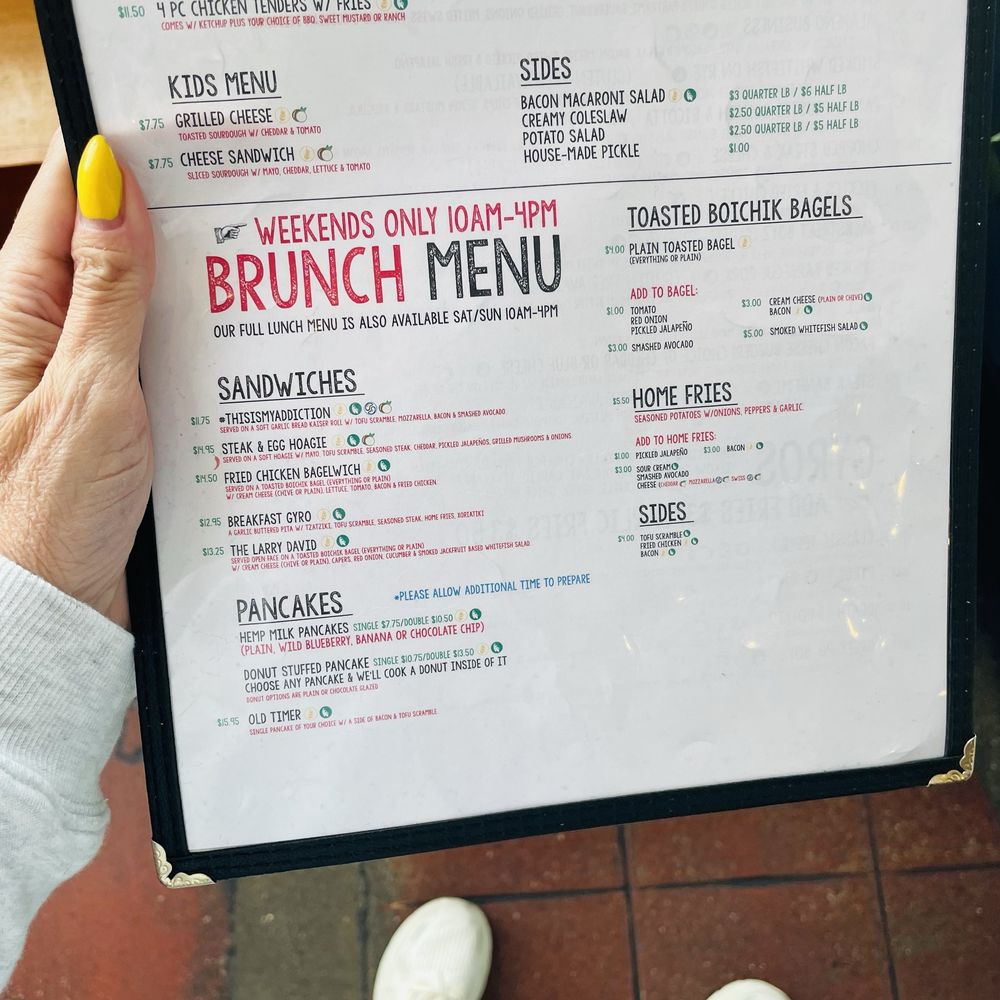 $11.50 4 PC CHICKEN TENDERS W/ FRIES
COMES W/ KETCHUP PLUS YOUR CHOICE OF BBQ, SWEET MUSTARD OR RANCH
KIDS MENU
$7.75 GRILLED CHEESE
TOASTED SOURDOUGH W/ CHEDDAR & TOMATO
$7.75 CHEESE SANDWICH
SLICED SOURDOUGH W/ MAYO, CHEDDAR, LETTUCE & TOMATO
SIDES
BACON MACARONI SALAD $3 QUARTER LB / $6 HALF LB
CREAMY COLESLAW $2.50 QUARTER LB / $5 HALF LB
POTATO SALAD $2.50 QUARTER LB / $5 HALF LB
HOUSE-MADE PICKLE $1.00
WEEKENDS ONLY 10AM-4PM
BRUNCH MENU
OUR FULL LUNCH MENU IS ALSO AVAILABLE SAT/SUN 10AM-4PM
SANDWICHES
$11.75 *THISISMYADDICTION
SERVED ON A SOFT GARLIC BREAD KAISER ROLL W/ TOFU SCRAMBLE, MOZZARELLA, BACON & SMASHED AVOCADO
$14.95 STEAK & EGG HOAGIE
SERVED ON A SOFT HOAGIE W/ MAYO, TOFU SCRAMBLE, SEASONED STEAK, CHEDDAR, PICKLED JALAPEÑOS, GRILLED MUSHROOMS & ONIONS
$14.50 FRIED CHICKEN BAGELWICH
SERVED ON A TOASTED BOICHIK BAGEL (EVERYTHING OR PLAIN)
W/ CREAM CHEESE (CHIVE OR PLAIN), LETTUCE, TOMATO, BACON & FRIED CHICKEN
$12.95 BREAKFAST GYRO
A GARLIC BUTTERED PITA W/ TZATZIKI, TOFU SCRAMBLE, SEASONED STEAK, HOME FRIES, XORIATIKI
$13.25 THE LARRY DAVID
SERVED OPEN FACE ON A TOASTED BOICHIK BAGEL (EVERYTHING OR PLAIN)
W/ CREAM CHEESE (CHIVE OR PLAIN), CAPERS, RED ONION, CUCUMBER & SMOKED JACKFRUIT BASED WHITEFISH SALAD
*PLEASE ALLOW ADDITIONAL TIME TO PREPARE
PANCAKES
HEMP MILK PANCAKES SINGLE $7.75/DOUBLE $10.50
(PLAIN, WILD BLUEBERRY, BANANA OR CHOCOLATE CHIP)
DONUT STUFFED PANCAKE SINGLE $10.75/DOUBLE $13.50
CHOOSE ANY PANCAKE & WE'LL COOK A DONUT INSIDE OF IT
DONUT OPTIONS ARE PLAIN OR CHOCOLATE GLAZED
$15.95 OLD TIMER
SINGLE PANCAKE OF YOUR CHOICE W/ A SIDE OF BACON & TOFU SCRAMBLE
TOASTED BOICHIK BAGELS
$4.00 PLAIN TOASTED BAGEL
(EVERYTHING OR PLAIN)
ADD TO BAGEL:
$1.00 TOMATO
RED ONION
PICKLED JALAPEÑO
$3.00 SMASHED AVOCADO
$3.00 CREAM CHEESE (PLAIN OR CHIVE)
BACON
$5.00 SMOKED WHITEFISH SALAD
$5.50 HOME FRIES
SEASONED POTATOES W/ONIONS, PEPPERS & GARLIC
ADD TO HOME FRIES:
$1.00 PICKLED JALAPEÑO $3.00 BACON
$3.00 SOUR CREAM
SMASHED AVOCADO
CHEESE (CHEDDAR MOZZARELLA SWISS
SIDES
$4.00 TOFU SCRAMBLE
FRIED CHICKEN
BACON